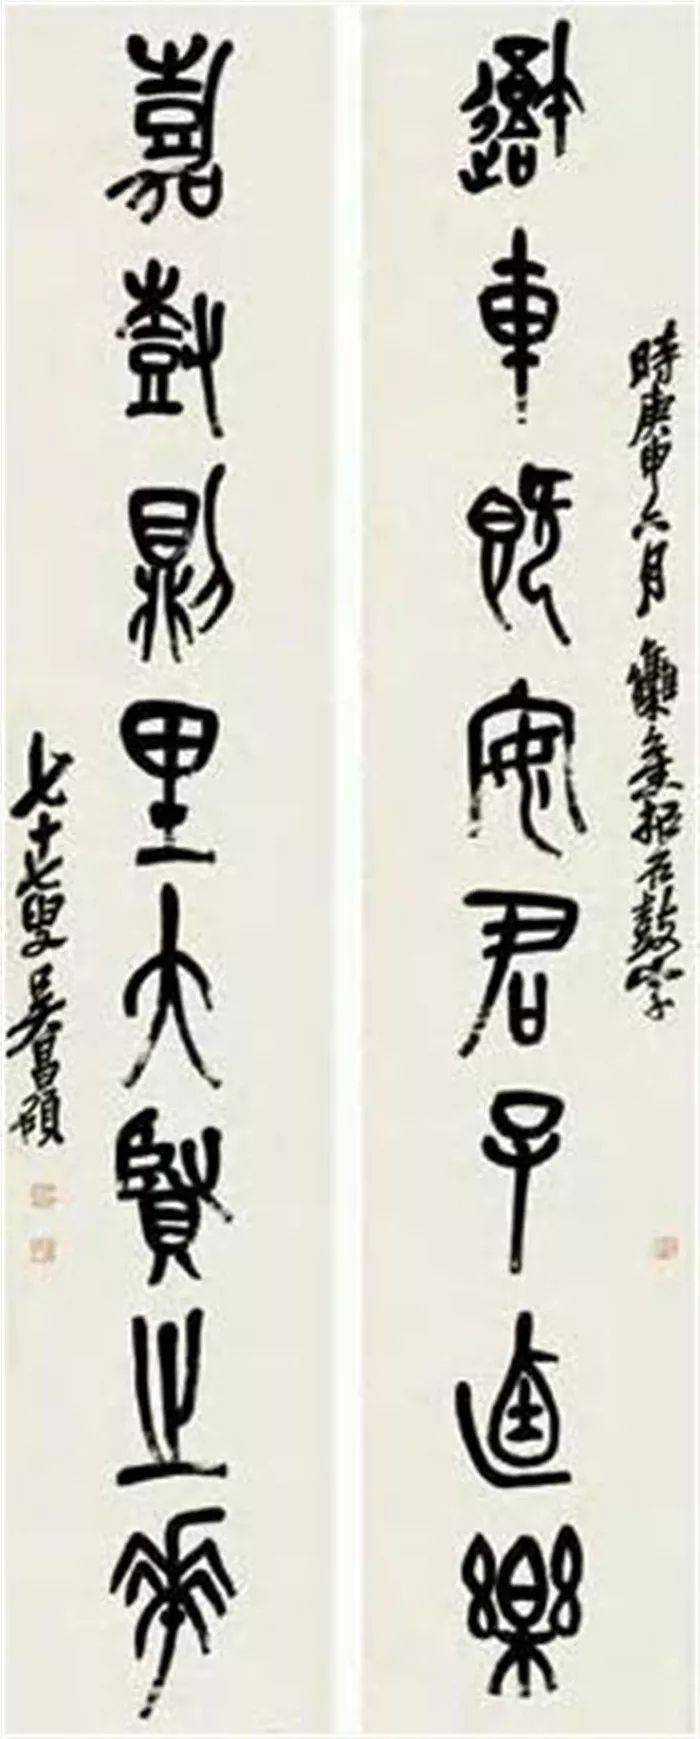 時庚申六月集拓石鼓字
車既安君子逌樂
嘉樹則里大賢之華
七十七叟吳昌碩